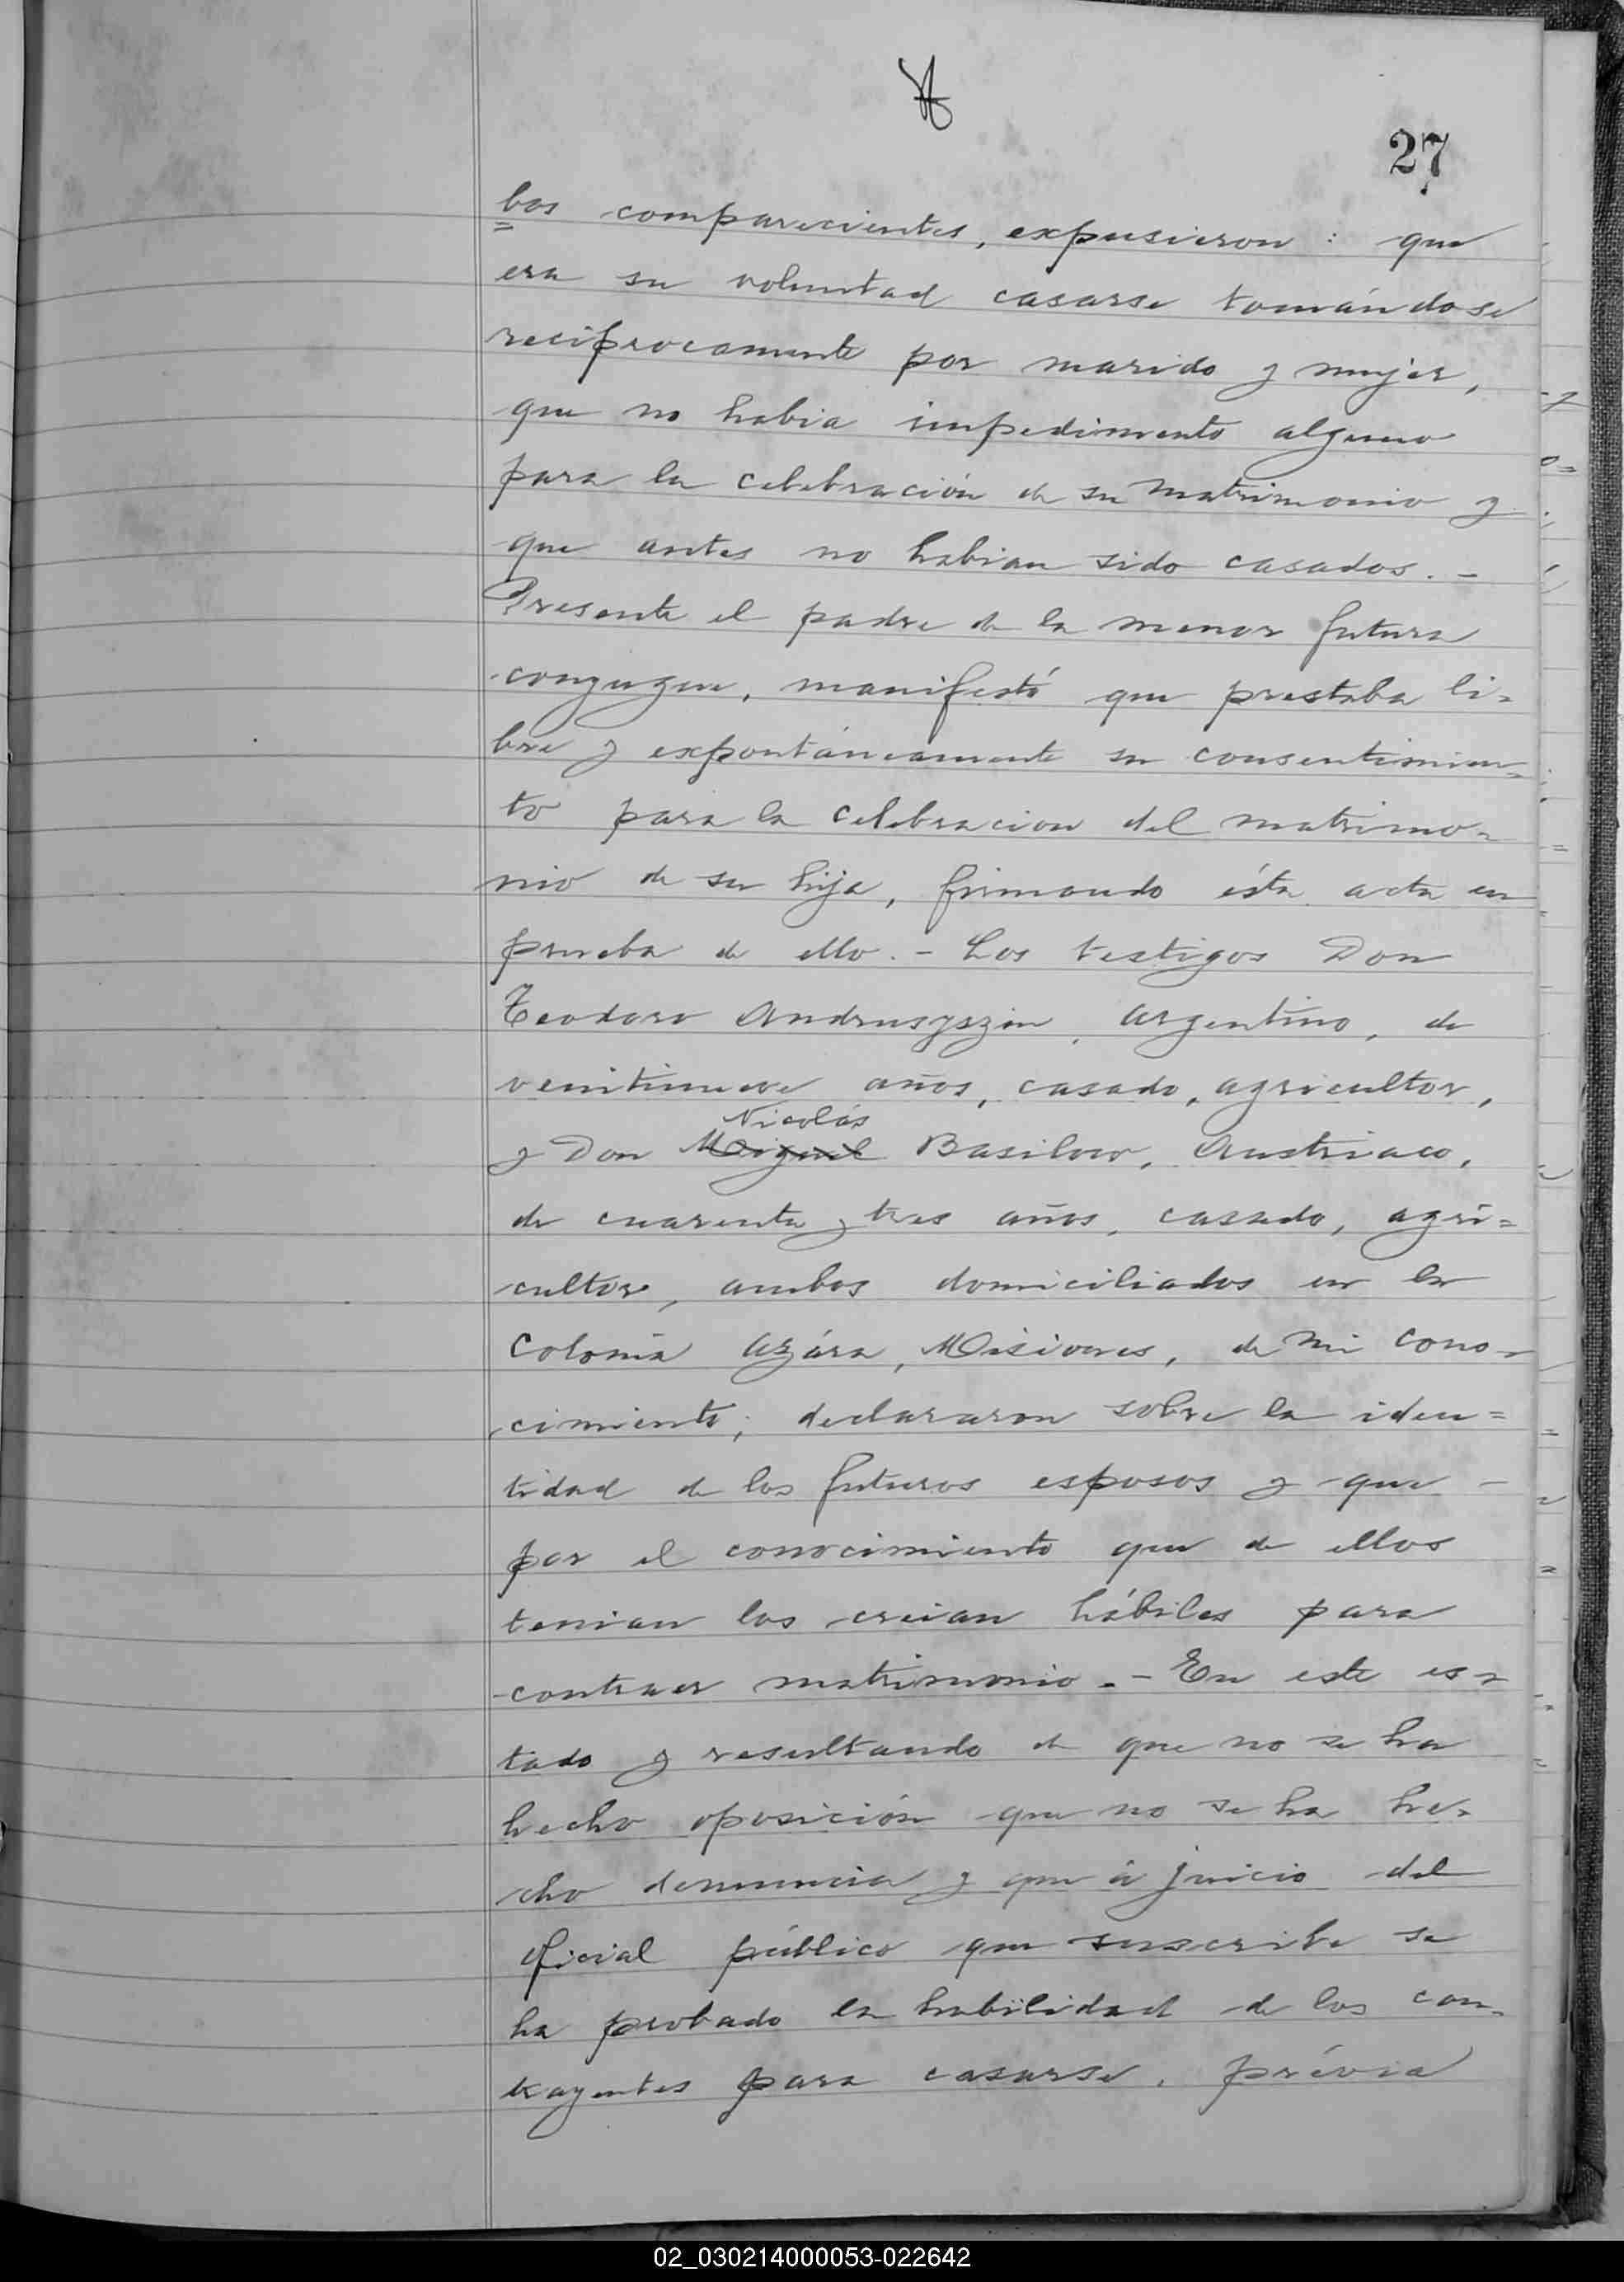 27
bos comparecientes, expusieron: que
era su voluntad casarse tomándose
recíprocamente por marido y mujer,
que no habia impedimento alguno
para la celebración de su matrimonio y
que antes no habian sido casados. -
Presente el padre de la menor futura
conyugue, manifestó que prestaba li=
bre y expontáneamente su consentimien=
to para la celebracion del matrimo=
nio de su hija, firmando ésta acta en
prueba de ello. - Los testigos Don
Teodoro Andrusyszin, argentino, de
venitinueve años, casado, agricultor,
Nicolás
y Don Miguel Basilow, Austriaco,
de cuarenta y tres años, casado, agri=
cultor, ambos domiciliados en la
Colonia Azára, Misiones, de mi cono=
cimiento; declararon sobre la iden=
tidad de los futuros esposos y que -
por el conocimiento que de ellos
tenian los creian hábiles para
contraer matrimonio. - En este es=
tado y resultando de que no se ha
hecho oposición que no se ha he=
cho denuncia y que á juicio del
oficial público que suscribe se
ha probado la habilidad de los con=
trayentes para casarse, prévia
02_030214000053-022642